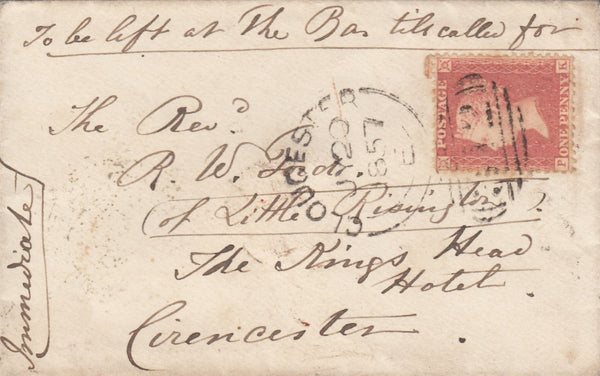 To be left at The Bar till called for
The Revd
R. W.
of Little Rissington.
The Kings Head
Hotel.
Cirencester
Immediate
POSTAGE
ONE PENNY
P K
K P
1857
E